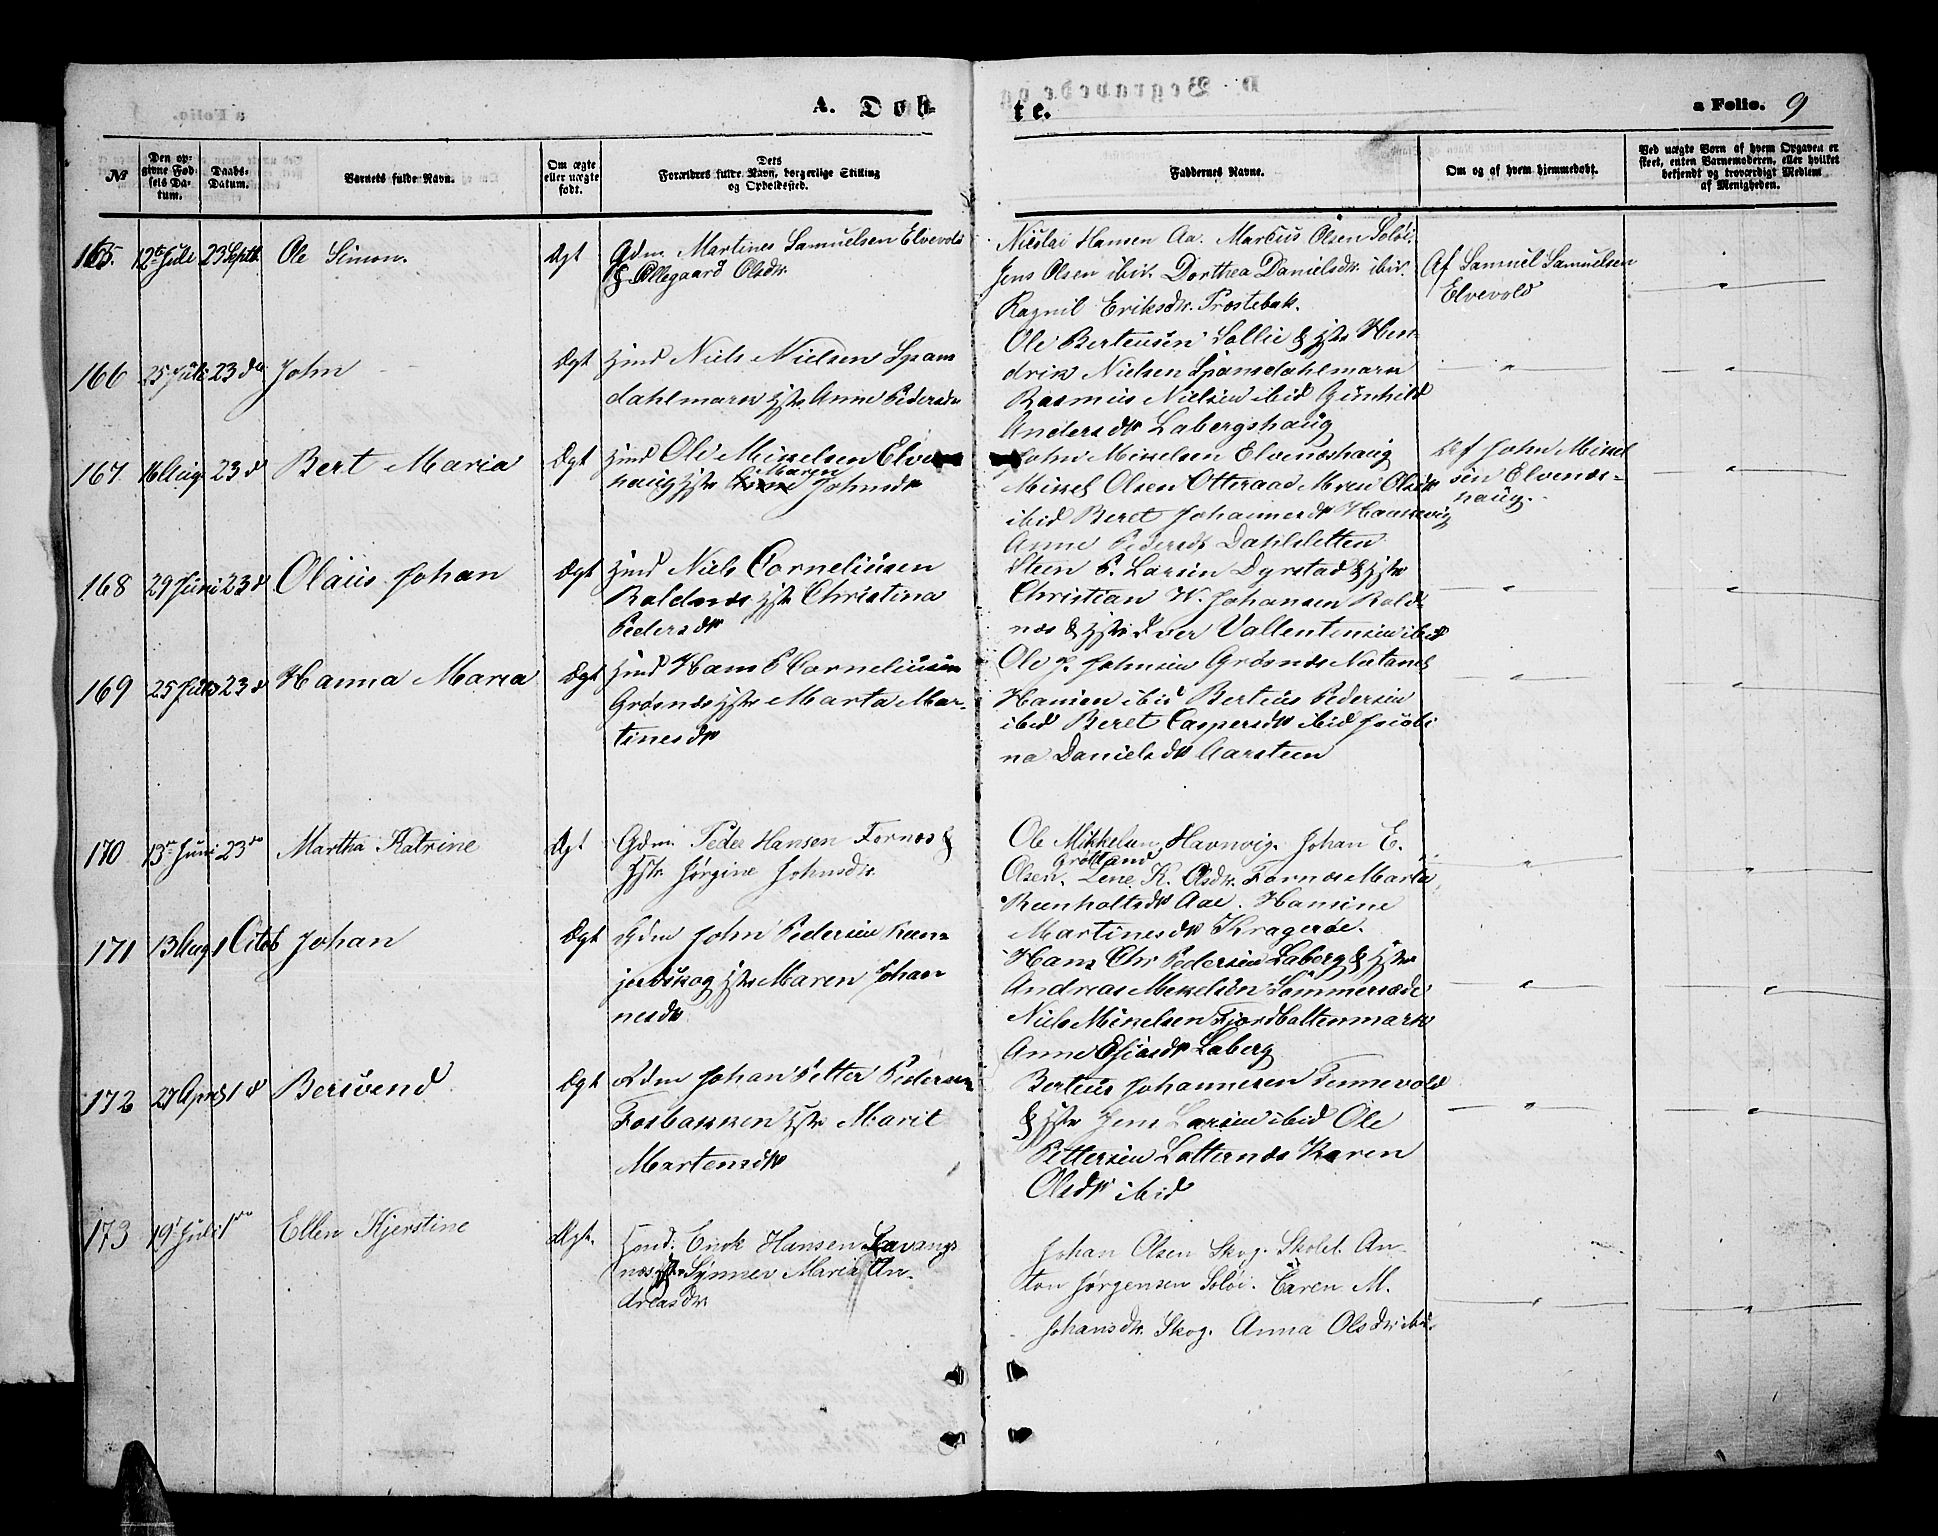 A. Døb-
te.
a Folio. 9
№
Den op-
givne Fød-
sels Da-
tum.
Daabs-
Datum.
Barnets fulde Navn.
Om ægte
eller uægte
født.
Dets
Forældres fulde Navn, borgerlige Stilling
og Opholdssted.
Faddernes Navne.
Om og af hvem hjemmedøbt.
Ved uægte Børn af hvem Opgaven er
skeet, enten Barnemoderen, eller hvilket
bekjendt og troværdigt Medlem
af Menigheden.
165. 12te Juli 23 Septb. Ole Simon. Ægt Gdm. Martines Samuelsen Elvevold
& Ellegaard Olsdr.
Nicolai Hansen Aa. Marcus Olsen Soløi.
Jens Olsen ibid. Dorthea Danielsdr. ibid.
Ragnil Eriksdr. Præstebak.
Af Samuel Samuelsen
Elvevold
166 25 Juli 23 do John Ægt Hmd Niels Nielsen Spans
dahlmark Hstr Anne Pedersdr
Ole Berteusen Sollie & Hstr Hen
drik Nielsen Spansdahlmark
Rasmus Nielsen ibid Gunhild
Andersdr Labergshaug
167 16 Aug 23 d Bert Maria Ægt Hmd Ole Mikkelsen Elve
haug Hstr Maren Johnsdr
John Mikkelsen Elveneshaug
Mikkel Olsen Otteraae Maren Olsdr
ibid Beret Johannesdr Haarvig
Anne Pedersdr Dahlsletten
Af John Mikkel
sen Elvenes-
haug.
168 29 Juni 23 d Olaus Johan Ægt Hmd Niels Corneliusen
Roldnes Hstr Christina
Pedersdr
Steen P. Larsen Dyrstad & Hstr
Christian W. Johansen Rold
nes & Hstr Iver Vallentinsen ibid
169 25 Juli 23 d Hanna Maria Ægt Hmd Hans P Corneliusen
Grøsnes Hstr Marta Mar-
tinesdr
Ole P. Johnsen Grøsnes Natanel
Hansen ibid Berteus Pedersen
ibid Beret Caspersdr ibid Jacobi
na Danielsdr Aarsteen
170 13de Juni 23 do Martha Katrine Ægt Gdm. Peder Hansen Fornes &
Hstr. Jørgine Johnsdr.
Ole Mikkelsen Havnvig. Johan E.
Olsen Grøtland. Lene K. Olsdr. Fornes Marta
Reenholtsdr Aae. Hansine
Martinesdr Kragerøe.
171 13 Aug 1 Octob Johan Ægt Gdm John Pedersen Reens
jerdskog Hstr Maren Johan
nesdr
Hans Chr Pedersen Laberg & Hstr
Andreas Mikkelsen Sommersæde
Niels Mikkelsen Fjordbottenmark
Anne Esiasdr Laberg
172 27 April 1 d Bersvend Ægt Gdm Johan Petter Pedersen
Fosbakken Hstr Marit
Martensdr
Berteus Johannesen Tennevold
& Hstr Jens Larsen ibid Ole
Pettersen Lotternes Karen
Olsdr ibid
173 19de Juli 1 do Ellen Kjerstine Ægt. Hmd. Enok Hansen Lavangs
nes Hstr Synnev Maria An-
dreasdr.
Johan Olsen Skog. Skolel. An-
ton Jørgensen Soløi. Caren M.
Johansdr. Skog. Anna Olsdr ibid.